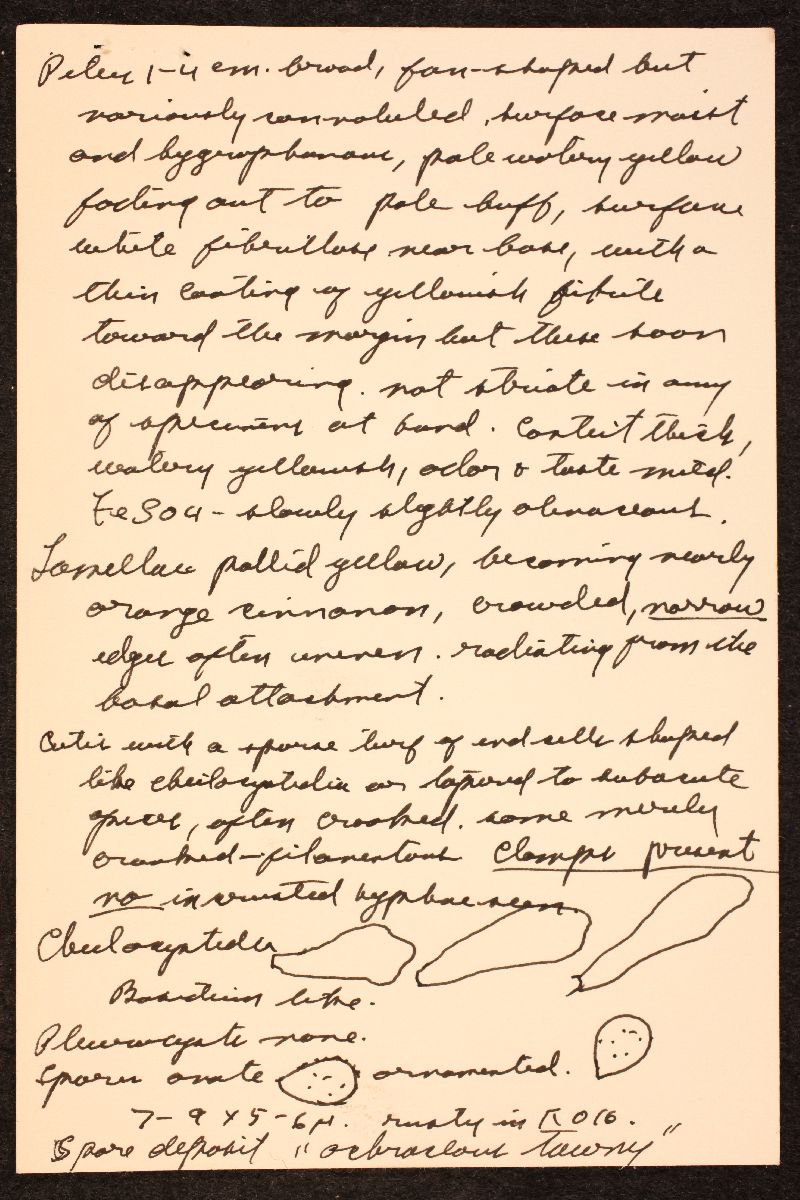 Pileus 1-4 cm. broad, fan-shaped but
variously convoluted, surface moist
and hygrophanous, pale watery yellow
fading out to pale buff, surface
white fibrillose near base, with a
thin coating of yellowish fibrils
toward the margin but these soon
disappearing. not striate in any
of specimens at hand. Context thick,
watery yellowish, odor & taste mild.
FeSO4 - slowly slightly olivaceous.
Lamellae pallid yellow, becoming nearly
orange cinnamon, crowded, narrow
edges often uneven. radiating from the
basal attachment.
Cutis with a sparse turf of end cells shaped
like cheilocystidia or tapered to subacute
apices, often crooked. some merely
crooked-filamentous Clamps present
no incrusted hyphae seen
Cheilocystidia
Basidium like.
Pleurocysts none.
Spores ovate ornamented.
7-9 x 5-6µ. rusty in KOH.
Spore deposit "ochraceous tawny"